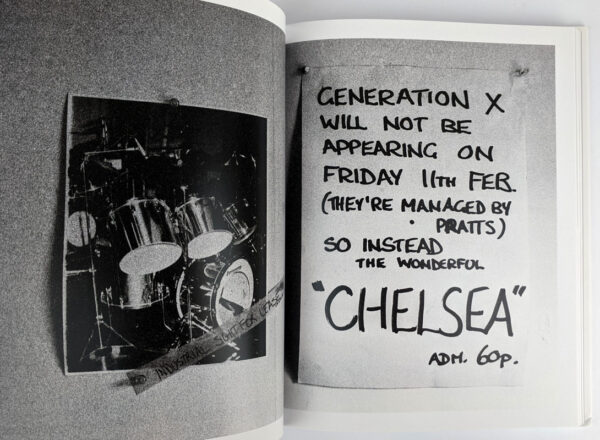 INDUSTRIAL UNIT FOR LEASE
GENERATION X
WILL NOT BE
APPEARING ON
FRIDAY 11TH FEB.
(THEY'RE MANAGED BY
PRATTS)
SO INSTEAD
THE WONDERFUL
"CHELSEA"
ADM. 60p.